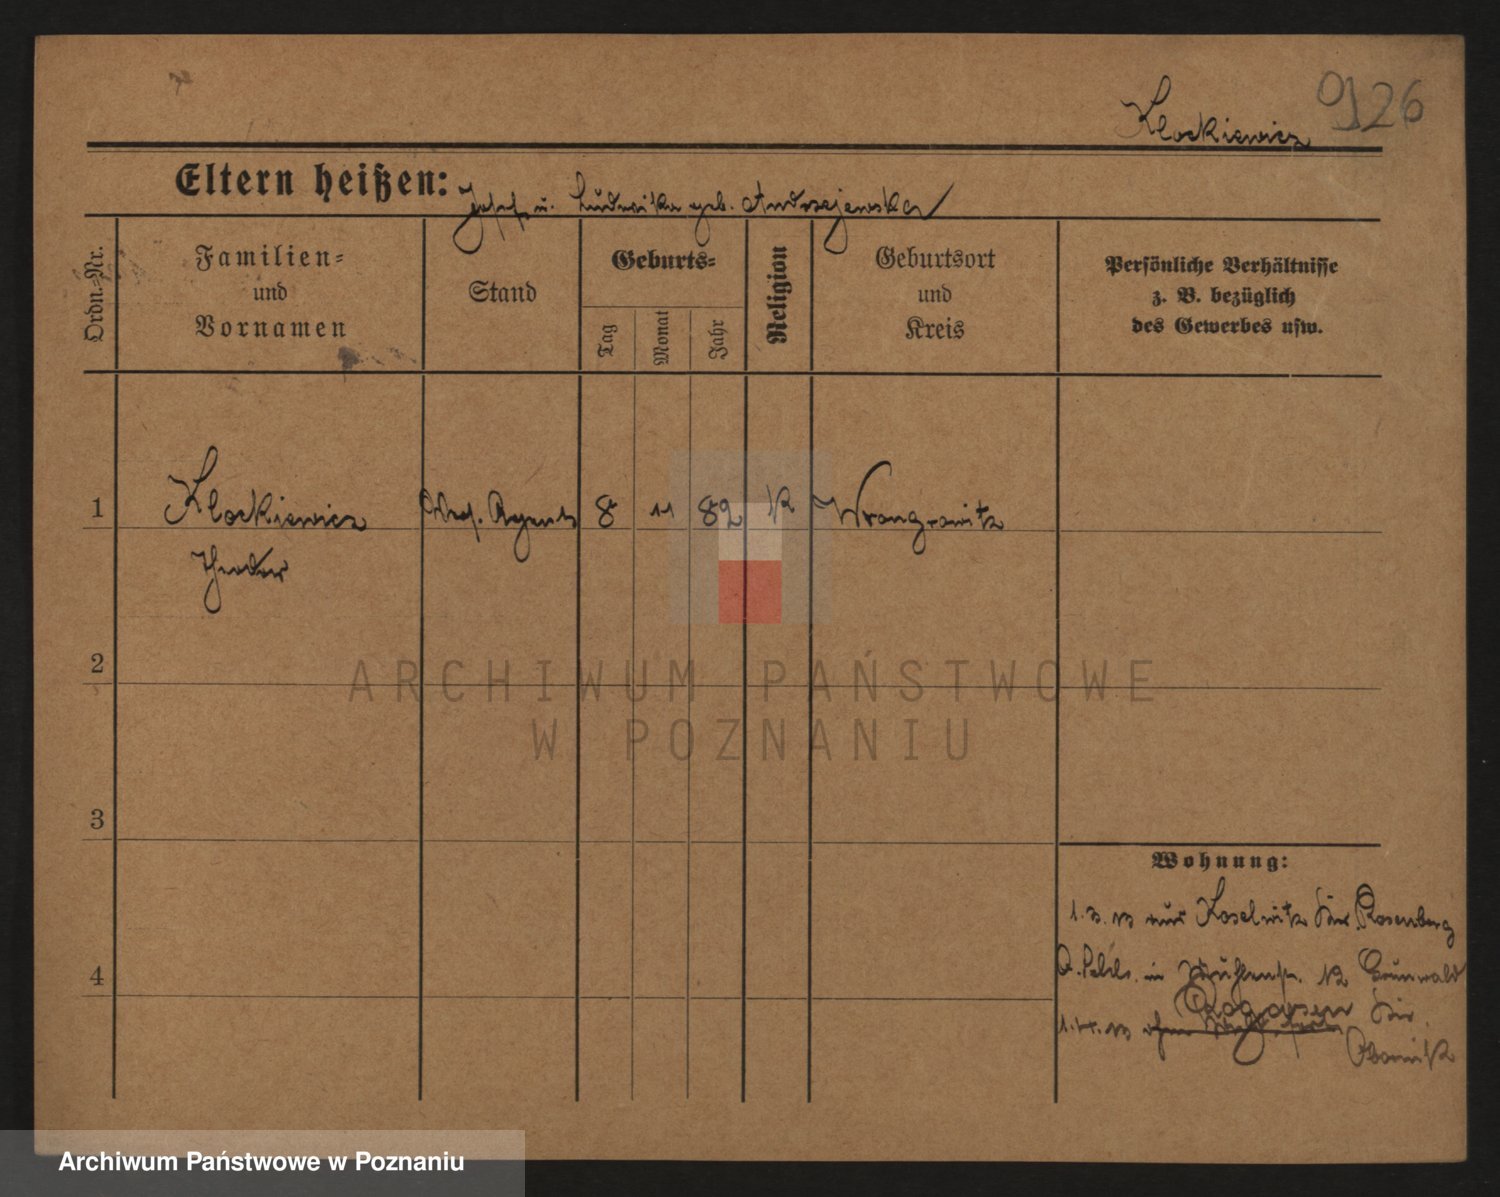 Klockiewicz 9126
Eltern heißen: Josef u. Ludwika geb. Andrzejewska
Ordn.-Nr.
Familien-
und
Vornamen
Stand
Geburts-
Tag
Monat
Jahr
Religion
Geburtsort
und
Kreis
Persönliche Verhältnisse
z. B. bezüglich
des Gewerbes usw.
1 Klockiewicz Agent 8 11 82 K Wrongrowitz
Theodor
2
3
4
Wohnung:
1.3.13 aus Koselwitz Kr. Rosenberg
in 12 Grünwald
Rogasen Kr.
1.4.13
Obornik
ARCHIWUM PAŃSTWOWE
W POZNANIU
Archiwum Państwowe w Poznaniu